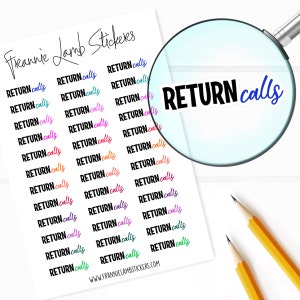 Frannie Lamb Stickers
RETURN calls RETURN calls RETURN calls
RETURN calls RETURN calls RETURN calls
RETURN calls RETURN calls RETURN calls
RETURN calls RETURN calls RETURN calls
RETURN calls RETURN calls RETURN calls
RETURN calls RETURN calls RETURN calls
RETURN calls RETURN calls RETURN calls
RETURN calls RETURN calls RETURN calls
RETURN calls RETURN calls RETURN calls
RETURN calls RETURN calls RETURN calls
RETURN calls RETURN calls RETURN calls
RETURN calls RETURN calls RETURN calls
RETURN calls RETURN calls RETURN calls
RETURN calls RETURN calls RETURN calls
WWW.FRANNIELAMBSTICKERS.COM
RETURN calls